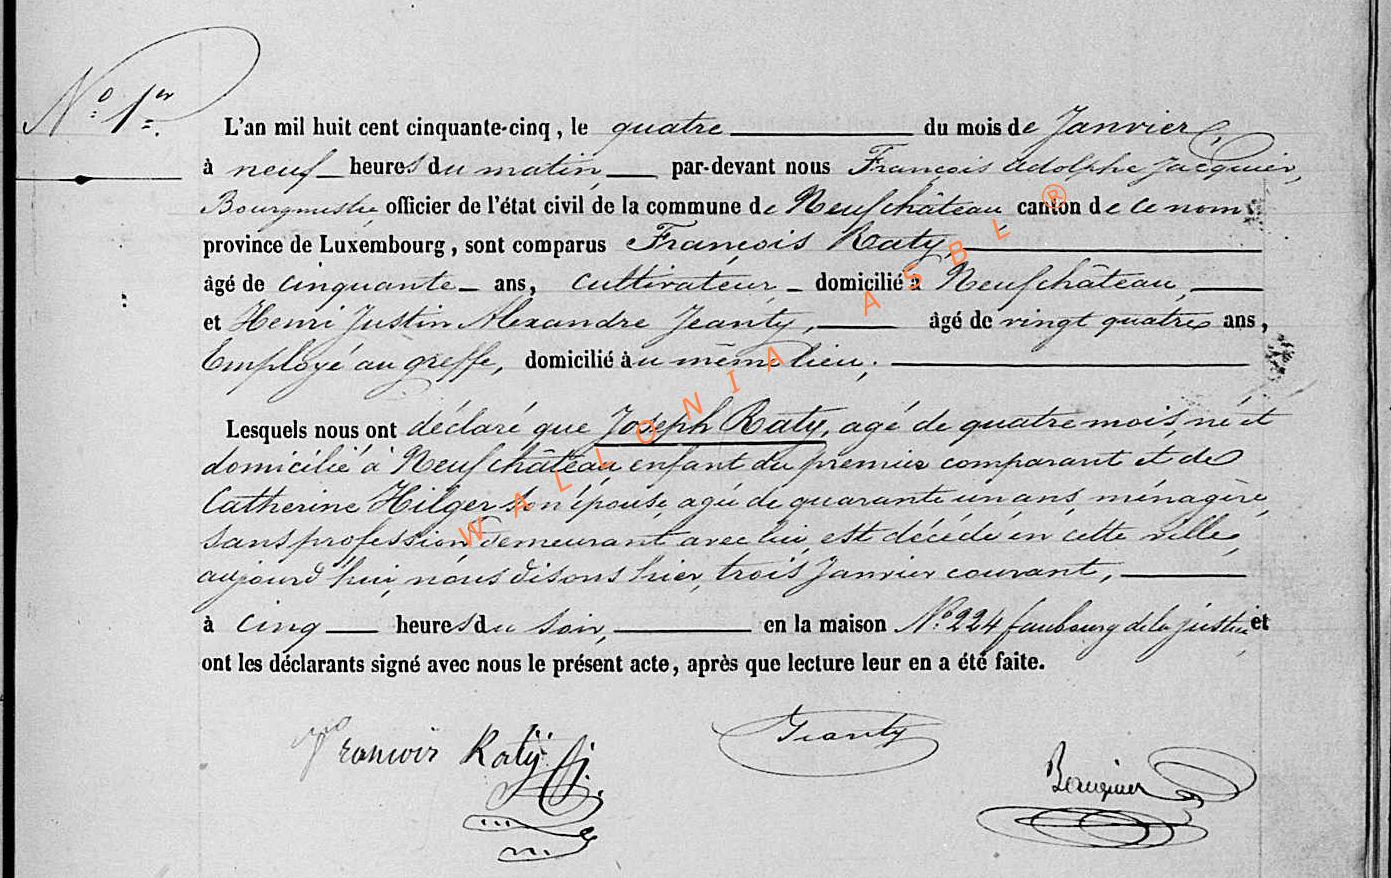 N° 1er
L'an mil huit cent cinquante-cinq, le quatre du mois de Janvier
à neuf heures du matin, par-devant nous François Adolphe Jacquier,
Bourgmestre officier de l'état civil de la commune de Neufchâteau canton de ce nom
province de Luxembourg, sont comparus François Raty,
âgé de cinquante ans, cultivateur domicilié à Neufchâteau,
et Henri Justin Alexandre Jeanty, âgé de vingt quatre ans,
Employé au greffe, domicilié au même lieu.
Lesquels nous ont déclaré que Joseph Raty, agé de quatre mois, né et
domicilié à Neufchâteau enfant du premier comparant et de
Catherine Hilger son épouse, agée de quarante un ans, ménagère,
sans profession demeurant avec lui, est décédé en cette ville,
aujourd'hui, nous disons hier, trois Janvier courant,
à cinq heures du soir, en la maison N° 224 faubourg de la justice, et
ont les déclarants signé avec nous le présent acte, après que lecture leur en a été faite.
François Raty
Jeanty
WALLONIA ASBL ®